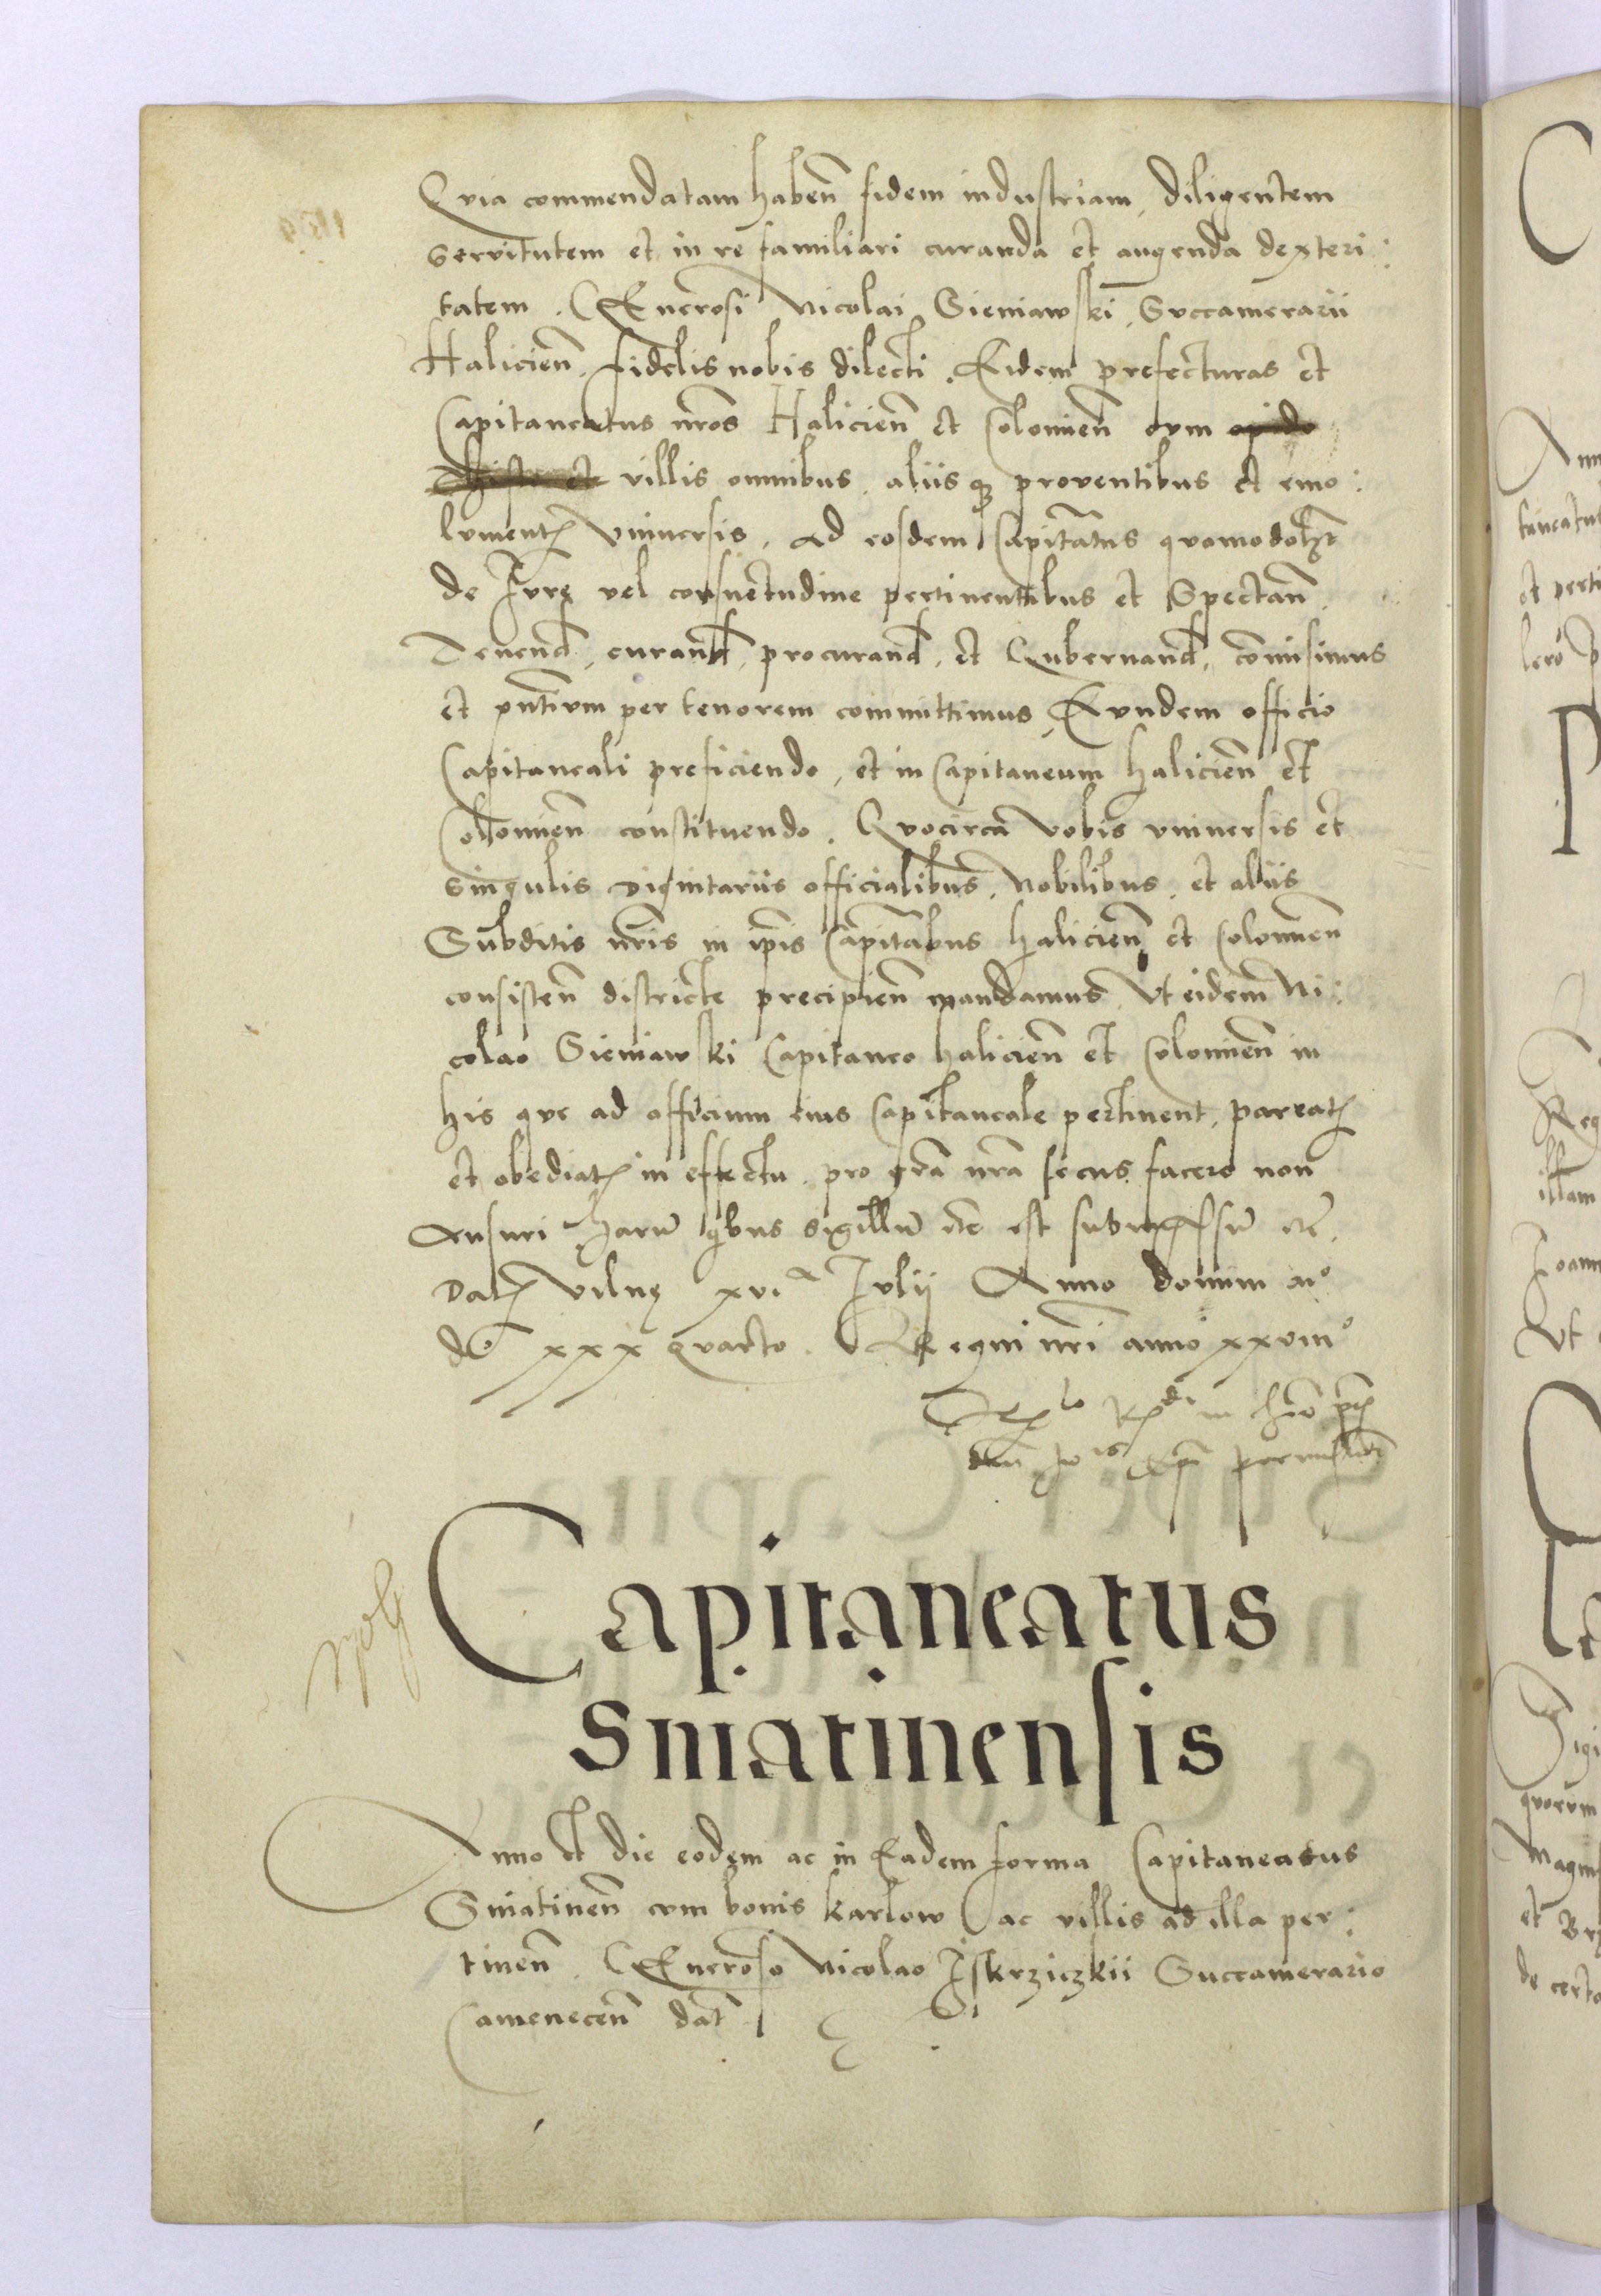 Qvia commendatam habeñ fidem industriam, diligentem
servitutem et in re familiari curanda et augenda dexteri:
tatem. Generosi Nicolai Sieniawski, Svccamerarii
Halicieñ, fidelis nobis dilecti. Eidem prefecturas et
Capitaneatus nr̄os Halicieñ et Colomieñ cvm opido
et villis omnibus, aliisqȝ proventibus et emo:
lvmentꝭ vniversis, ad eosdem Capitāatus qvomodolꝫt
de Jvrę vel consuetudine pertinentibus et Spectañ.
Tenend̄, curand̄, procurand̄, et Gubernand̄, com̄isimus
et pn̄tivm per tenorem committimus, Eundem officio
Capitaneali preficiendo, et in Capitaneum halicieñ et
Colomieñ constitvendo. Qvocirca vobis vniversis et
singulis dignitariis officialibus, Nobilibus, et aliis
Subditis nr̄is in ip̄is Capitāatibus halicieñ et Colomieñ
consisteñ districte precipieñ mandamus, Vt eidem Ni:
colao Sieniawski Capitaneo halicieñ et Colomieñ in
his qve ad officium eius Capitaneale pertinent, pareatꝭ
et obediatꝭ in effectu. pro gr̄a nr̄a secus facere non
Ausuri Harū qībus sigillū nr̄m est subimpressū etc̄.
Datꝭ Vilnę xviᵃ Jvlij Anno domini Mᵒ
dᵒ xxx qvarto. Regni nr̄i anno xxviiiᵒ
in
Capitaneatus
sniatinensis
Anno et die eodem ac in Eadem forma Capitaneatus
Sniatineñ cvm bonis Karlow ac villis ad illa per:
tineñ. Generoso Nicolao Iskrziczkii Succamerario
Cameneceñ dat̄